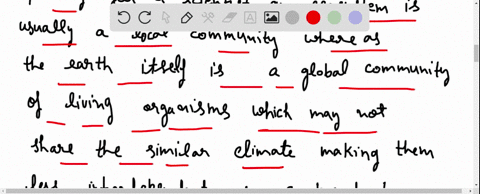 is
usually a local community where as
the earth itself is a global community
of living organisms which may not
share the similar climate making them